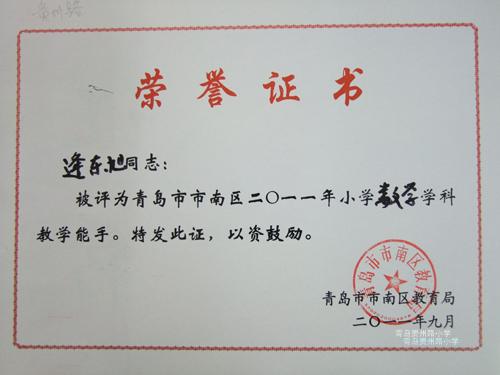 贵州路
荣誉证书
逄东旭同志：
被评为青岛市市南区二〇一一年小学数学学科
教学能手。特发此证，以资鼓励。
青岛市市南区教育局
青岛市市南区教育局
二〇一一年九月
青岛贵州路小学
青岛贵州路小学